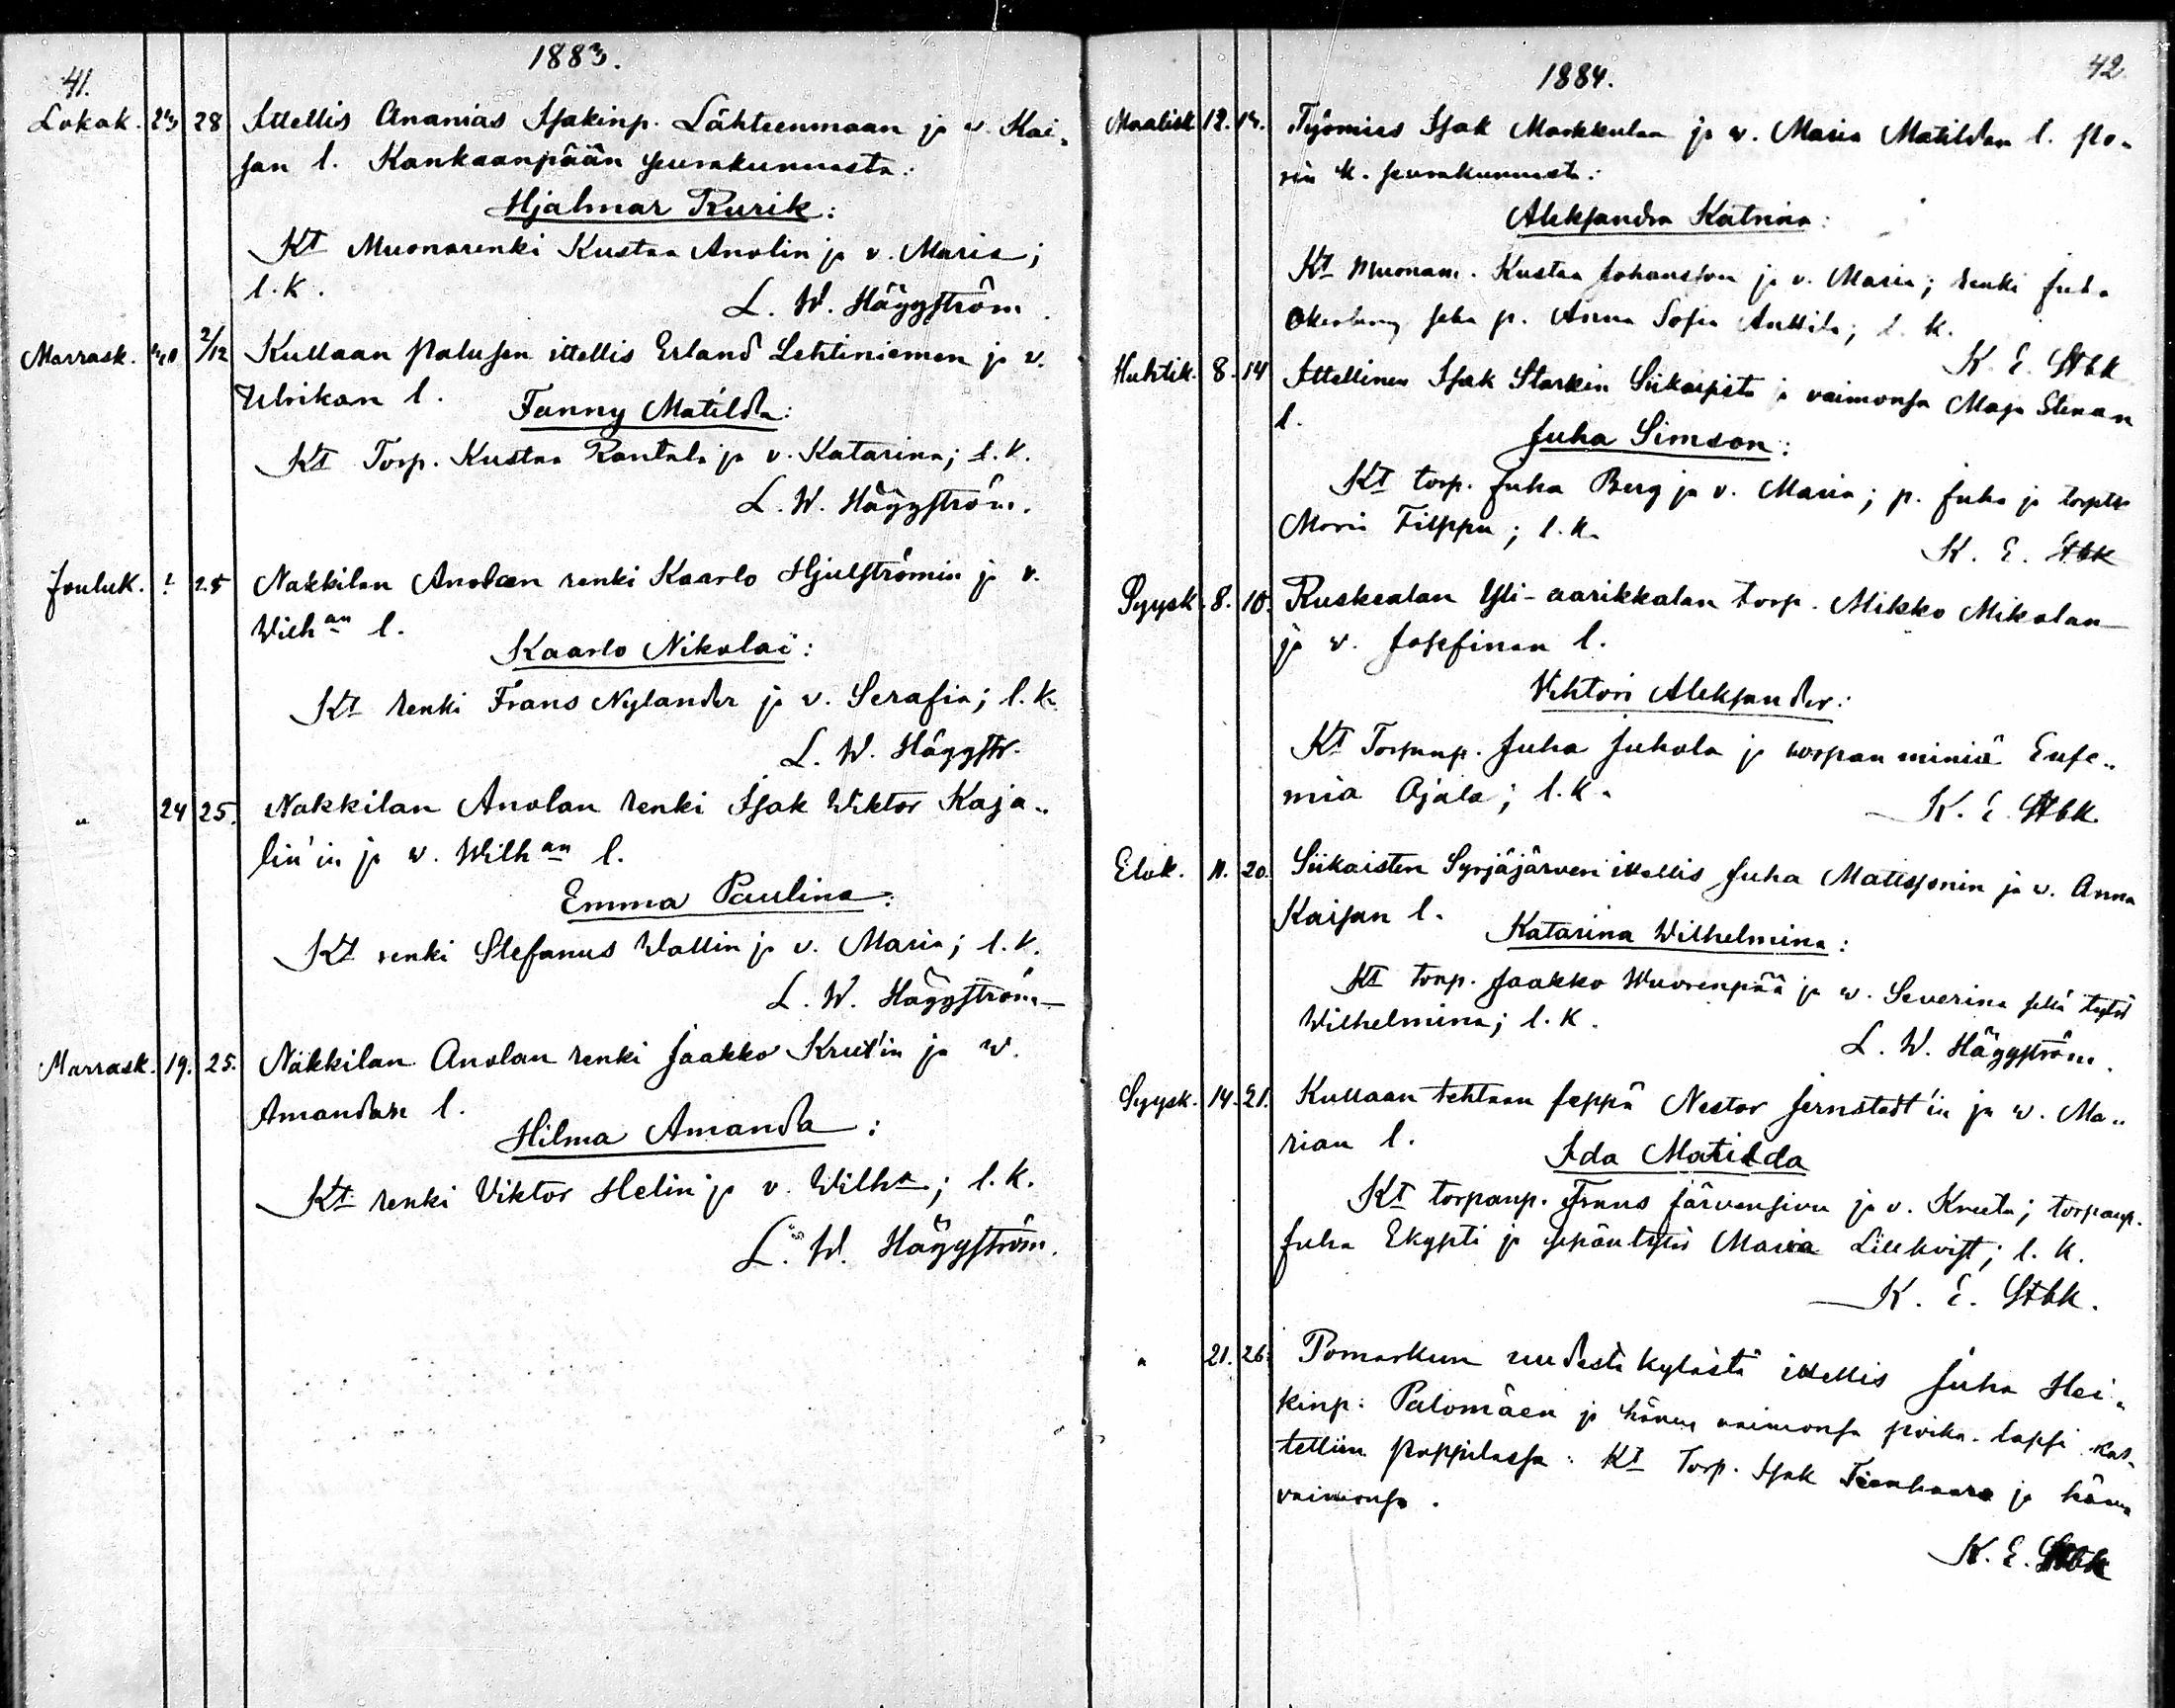 41.
1883.
Lokak. 23 28 Ittellis Ananias Isakinp. Lähteenmaan ja v. Kai„
san l. Kankaanpään seurakunnasta:
Hjalmar Rurik:
Kt Muonarenki Kustaa Anolin ja v. Maria;
l. k.
L. W. Häggström.
Marrask. 2/12 Kullaan Palusen ittellis Erland Lehtiniemen ja v.
Ulrikan l.
Fanny Matilda:
Kt Torp. Kustaa Rantala ja v. Katarina; l. k.
L. W. Häggström.
Jouluk. ? 25 Nakkilan Anolan renki Kaarlo Hjulströmin ja v.
Wilhan l.
Kaarlo Nikolai:
Kt renki Frans Nylander ja v. Serafia; l. k.
L. W. Häggstr.
„ 24 25. Nakkilan Anolan renki Isak Wiktor Kaja„
lin'in ja w. Wilhan l.
Emma Paulina:
Kt renki Stefanus Wallin ja v. Maria; l. k.
L. W. Häggström
Marrask. 19. 25. Nakkilan Anolan renki Jaakko Krut'in ja w.
Amandan l.
Hilma Amanda:
Kt renki Viktor Helin ja v. Wilha; l. k.
L. W. Häggström.
42
1884.
Maalisk 12. 14. Työmies Isak Markkulan ja w. Maria Matildan l. Po„
rin k. seurakunnasta:
Aleksandra Katrina:
Kt Muonam. Kustaa Johansson ja v. Maria; renki Juha
Okerberg seka p. Anna Sofia Anttila; l. k.
K. E. Stbk
Huhtik. 8. 14 Ittellinen Isak Starkin Siikaisista ja vaimonsa Maja Stenan
l.
Juha Simson:
Kt torp. Juha Berg ja v. Maria; p. Juha ja
Maria Filppu; l. k.
K. E. Stbk
Syysk. 8. 10. Ruskealan Yli-aarikkalan torp. Mikko Mikolan
ja w. Josefinan l.
Vihtori Aleksander:
Kt Torpanp. Juha Juhola ja torpan miniä Eufe„
mia Ojala; l. k.
K. E. Stbk.
Elok. 11. 20. Siikaisten Syrjäjärven ittellis Juha Matissonin ja v. Anna
Kaisan l.
Katarina Wilhelmina:
Kt torp. Jaakko Wuorenpää ja w. Severina sekä tytös
Wilhelmina; l. k.
L. W. Häggström.
Syysk. 14. 21. Kullaan tehtaan seppä Nestor Jernstedt'in ja w. Ma„
rian l.
Ida Matilda
Kt torpanp. Frans Järvensivu ja v. Kreeta; torpanp.
Juha Ekypti ja sepäntytös Maria Lillkvist; l. k.
K. E. Stbk.
„ 21. 26. Pomarkun uudesta kylästä ittellis Juha Hei„
kinp: Palomäen ja hänen vaimonsa poika-lapsi kas„
tettiin Pappilassa: Kt Torp. Isak Tienhaara ja hänen
vaimonsa.
K. E. Stbk